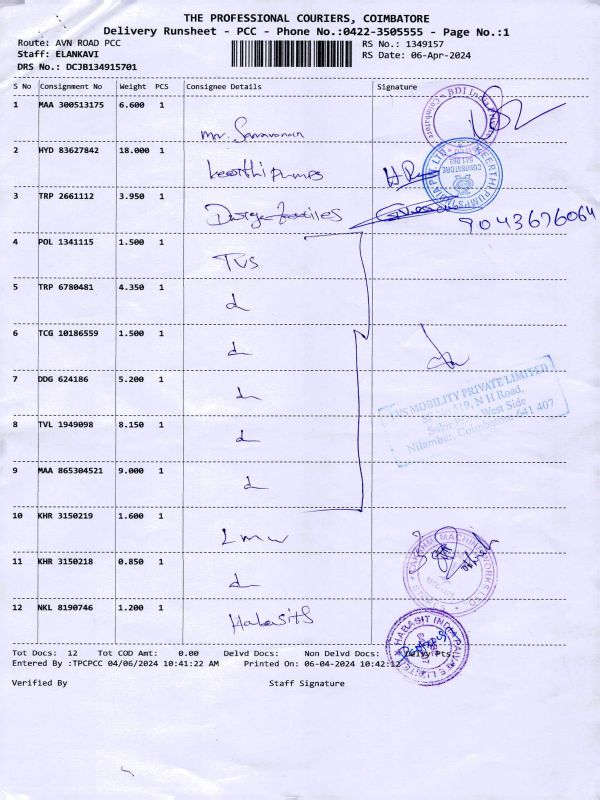 THE PROFESSIONAL COURIERS, COIMBATORE
Delivery Runsheet - PCC - Phone No.:0422-3505555 - Page No.:1
Route: AVN ROAD PCC
RS No.: 1349157
Staff: ELANKAVI
RS Date: 06-Apr-2024
DRS No.: DCJB134915701
S No Consignment No Weight PCS Consignee Details Signature
1 MAA 300513175 6.600 1
BDI India
Coimbatore
Mr. Saravanan
2 HYD 83627842 18.000 1
Keerthi pumps
KEERTHI PUMPS INDIA PVT LTD
COIMBATORE
641 062
3 TRP 2661112 3.950 1
9043676064
4 POL 1341115 1.500 1
TVS
5 TRP 6780481 4.350 1
d
6 TCG 10186559 1.500 1
d
7 DDG 624186 5.200 1
d
TVS MOBILITY PRIVATE LIMITED
519, N H Road,
West Side
Nilambur, Coimbatore 641 407
8 TVL 1949098 8.150 1
d
9 MAA 865304521 9.000 1
d
10 KHR 3150219 1.600 1
LMW
LAKSHMI MACHINE WORKS LTD
11 KHR 3150218 0.850 1
d
12 NKL 8190746 1.200 1
Habasits
HABASIT INDIA PRIVATE LIMITED
Tot Docs: 12 Tot COD Amt: 0.00 Delvd Docs: Non Delvd Docs: Delvy Pts:
Entered By :TPCPCC 04/06/2024 10:41:22 AM Printed On: 06-04-2024 10:42:12
Verified By Staff Signature